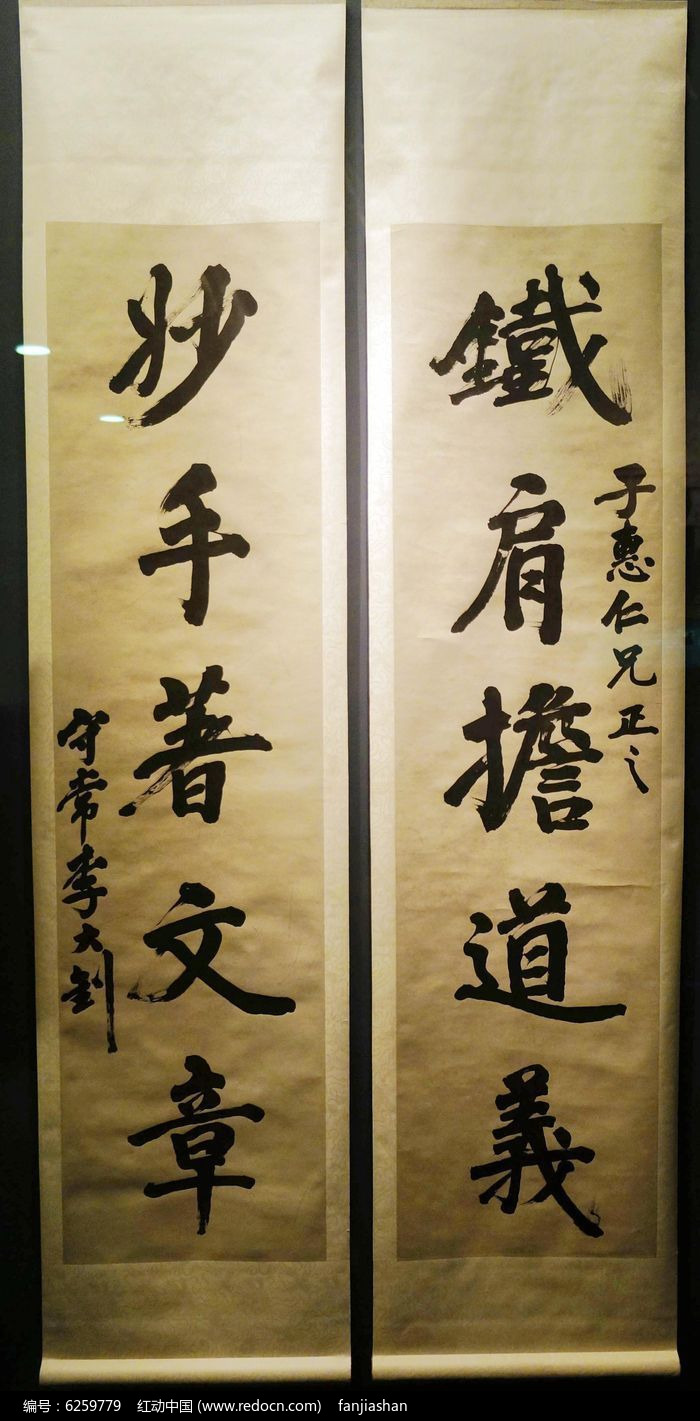 鐵肩擔道義
子惠仁兄正之
妙手著文章
守常李大釗
编号：6259779 红动中国 (www.redocn.com) fanjiashan